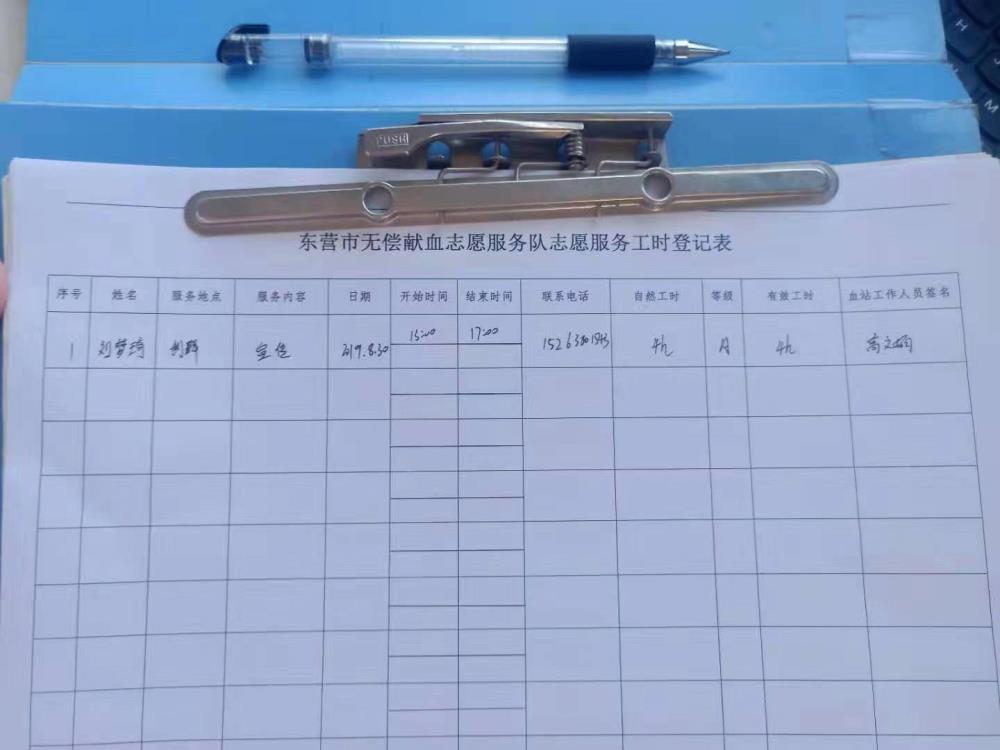 PUSH
东营市无偿献血志愿服务队志愿服务工时登记表
序号 姓名 服务地点 服务内容 日期 开始时间 结束时间 联系电话 自然工时 等级 有效工时 血站工作人员签名
1 刘梦琦 利群 宣传 2019.8.30 15:00 17:00 4h 4h 高文娟
H
N
M